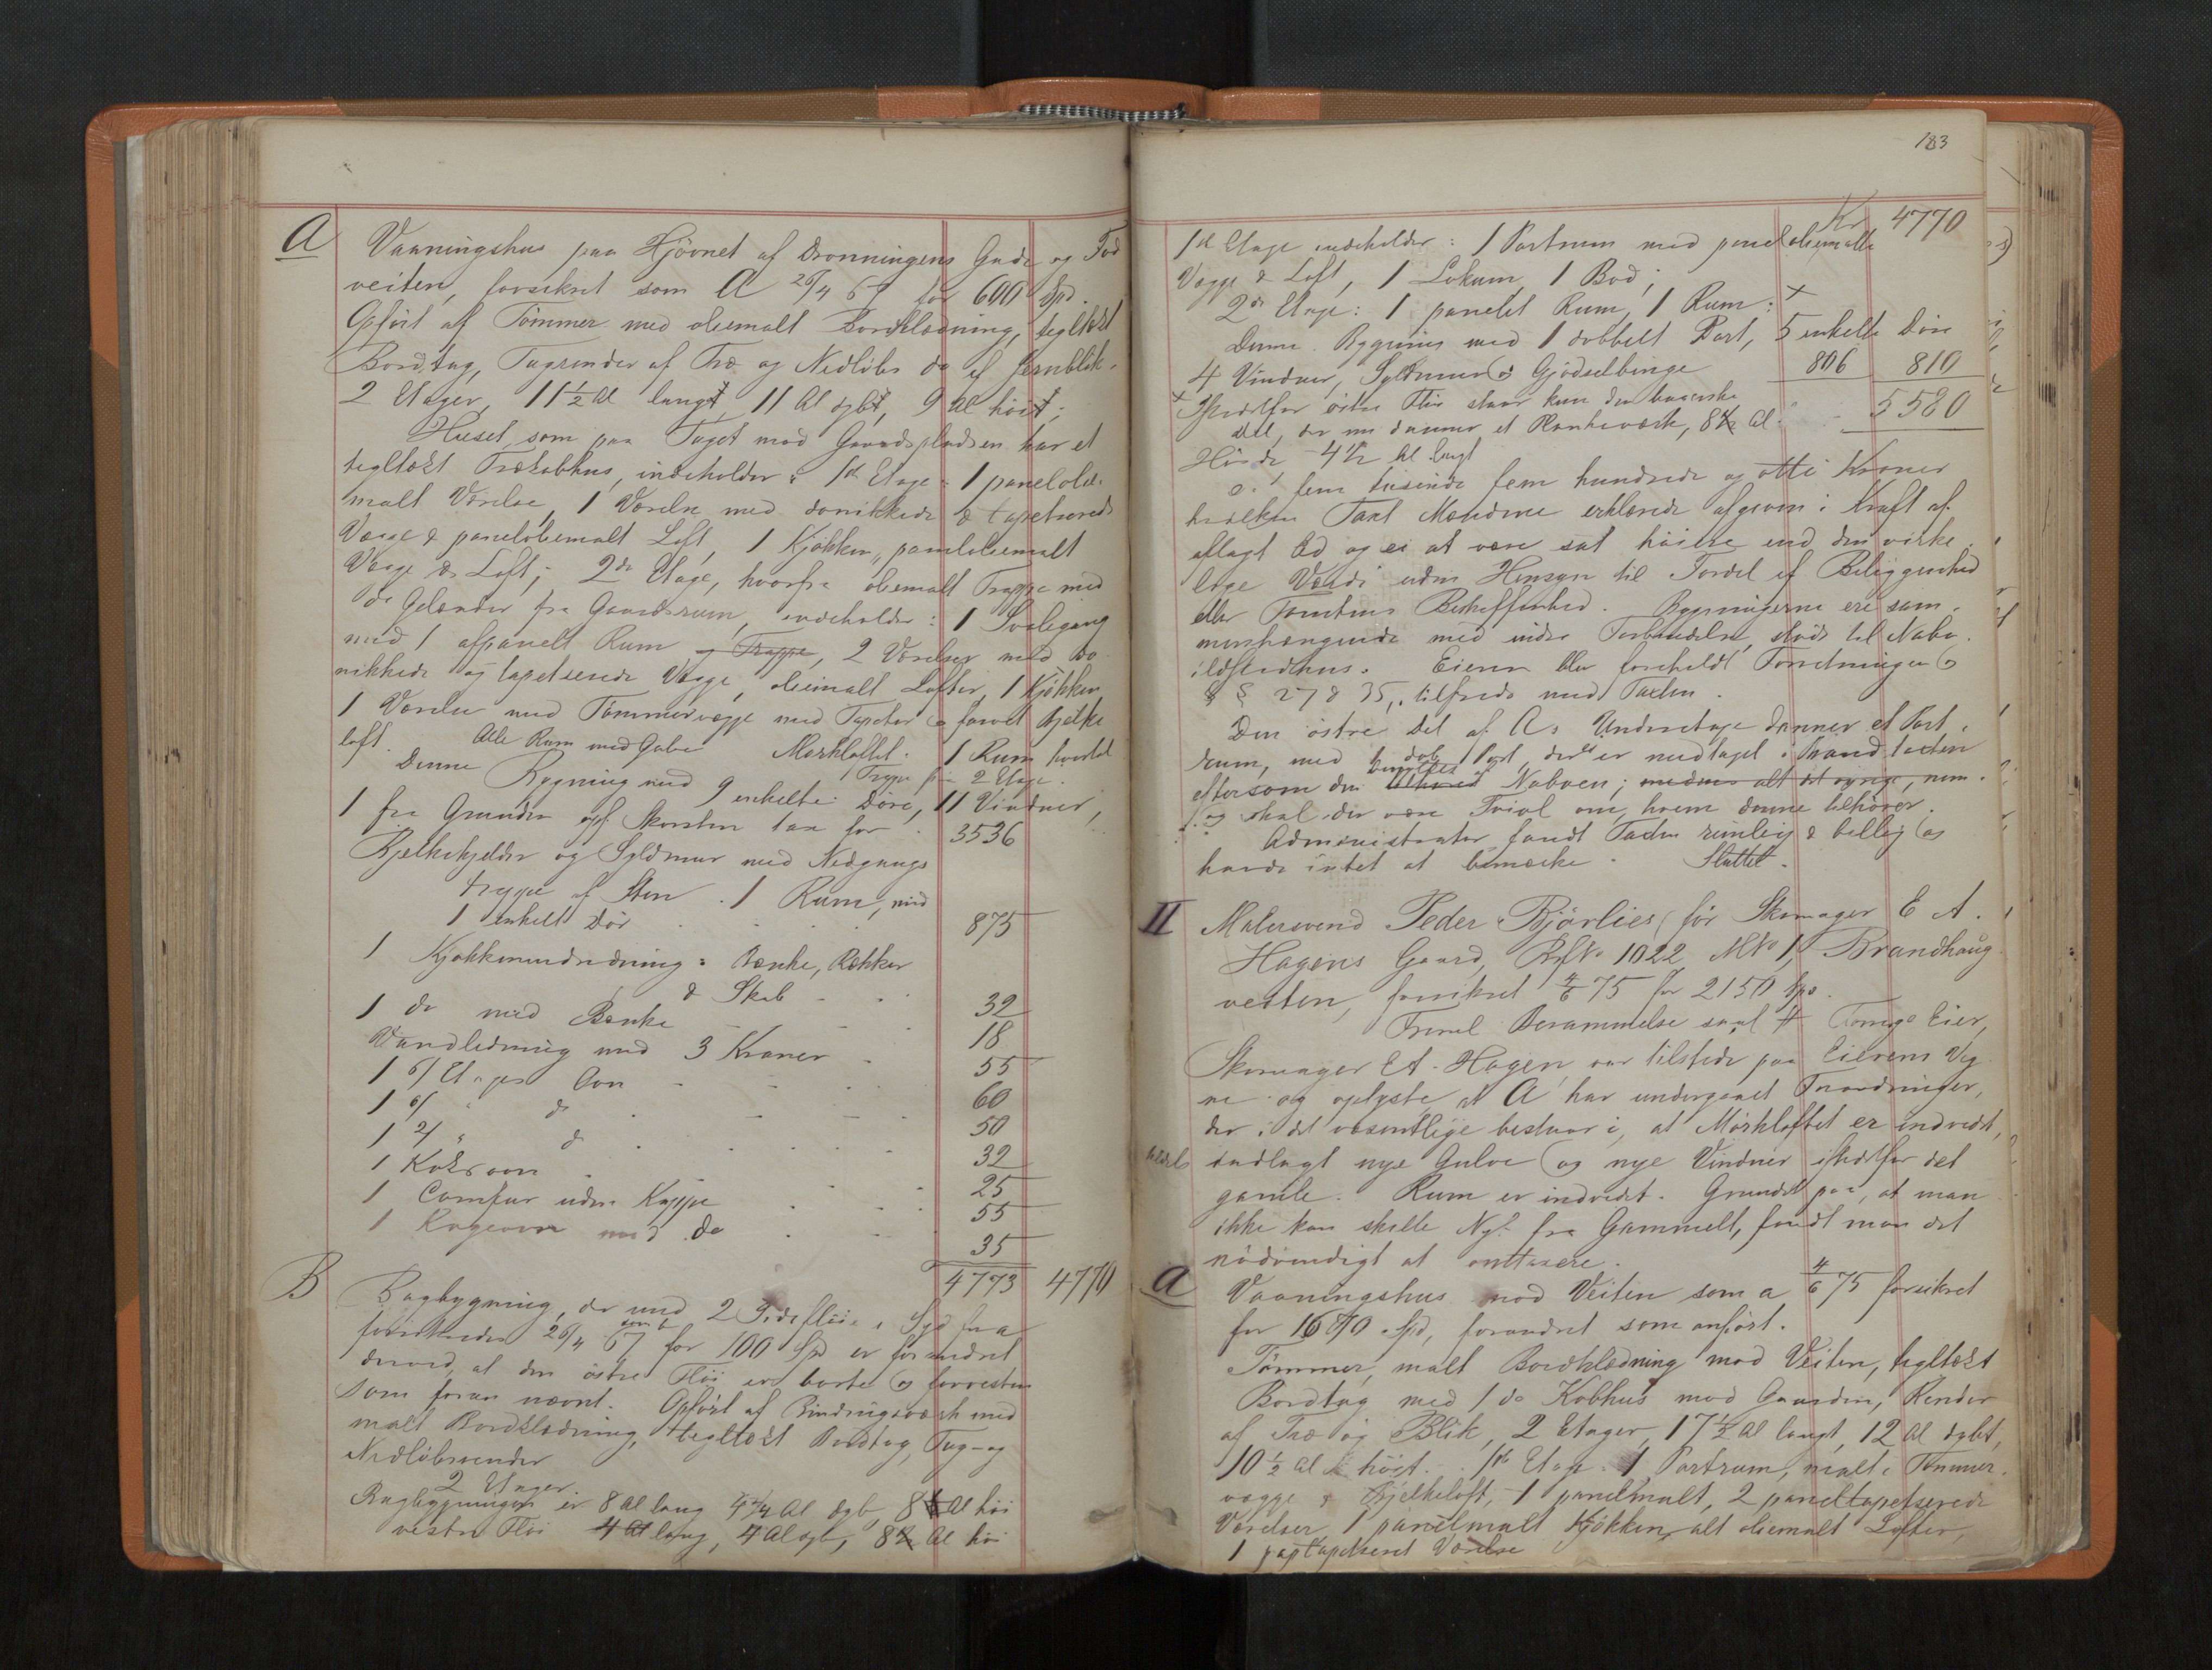 A Vaaningshus paa Hjörnet af Dronningens Gade og Tod
veiten, forsikret som A 26/4 67 for 600 Spd.
Opfört af Tömmer med oliemalt Bordklædning, tegltækt
Bordtag, Tagrender af Træ og Nedlöbs do af Jernblik.
2 Etager, 11 1/2 Al langt, 11 Al dybt, 9 Al höit;
Huset, som paa Taget mod Gaardspladsen har et
tegltækt Trækobhus, indeholder: 1st Etage: 1 panelolie-
malt Værelse, 1 Værelse med donikkede & tapetserede
Vægge & paneloliemalt Loft, 1 Kjökken, paneloliemalt
Vægge & Loft; 2den Etage, hvorfra oliemalt Trappe med
do Gelænder fra Gaardsrum, indeholder: 1 Svalegang
med 1 afpanelt Rum og Trappe, 2 Værelser med do
nikkede og tapetserede Vægge, oliemalt Lofter, 1 Kjökken
1 Værelse med Tömmervægge med Tapeter og farvet Bjelke
loft. Alle Rum med Gulve Mörkloftet. 1 Rum hvortil
1 Trappe fra 2 Etage.
Denne Bygning med 9 enkelte Döre, 11 Vinduer,
1 fra Grunden opf. Skorsten tax for 3536
Bjelkekjelder og Syldmur med Nedgangs
trappe af Sten. 1 Rum, med
1 enkelt Dör 875
1 Kjökkenindredning: Bænke, Rækker
& Skab 32
1 do med Bænke 18
Vandledning med 3 Kraner 55
1 6/ Etages Ovn 60
1 6/ " do 50
1 2/ " do 32
1 Koksovn 25
1 Comfur uden Kappe 55
1 Bageovn med do 35
4773 4770
B Bagbygning, der med 2 Sideflöie i Syd fra
forsikredes 26/4 67 som b for 100 Spd er forandret
derved, at den östre Flöi er borte og forresten
som foran nævnt. Opfört af Bindingsværk med
malt Bordklædning, tegltækt Bordtag, Tag- og
Nedlöbsrender
2 Etager.
Bagbygningen er 8 Al lang 4 3/4 Al dyb, 8 Al höi
vestre Flöi 4 Al lang, 4 Al dyb, 8 Al höi
183
Kr 4770
1st Etage indeholder: 1 Portrum med paneloliemalte
Vægge & Loft, 1 Lokum, 1 Bod;
2den Etage: 1 panelet Rum, 1 Rum: x
Denne Bygning med 1 dobbelt Port, 5 enkelte Döre
4 Vinduer, Syldmur og Gjödselbinge 806 810
x Istedetfor östre Flöi staar kun den bagerste 5580
del, der nu danner et Plankeværk, 8 Al
Höide 4 1/2 Al langt
fem tusinde fem hundrede og otti Kroner
hvilken Taxt Mændene erklærede afgiven i Kraft af
aflagt Ed og ei at være sat höiere end den virke
lige Værdi uden Hensyn til Fordel af Beliggenhed
eller Tomtens Beskaffenhed. Bygningerne ere sam-
menhængende med indre Forbindelse, stöde til Nabo-
ildstedhus. Eieren blev foreholdt Forretningen og
§ § 27 & 35, tilfreds med Taxten.
Den östre Del af A's Underetage danner et Port-
rum, med 1 dob. Port, der er medtaget i Brandtaxten
eftersom den benyttes Naboen; medens alt det övrige, nem-
og skal der være Tvivl om, hvem denne tilhörer.
Administrator fandt Taxten rimelig & billig og
havde intet at bemærke. Sluttet.
II Malersvend Peder Bjorlies (för Skomager E A.
Hagens Gaard, BrfNo 1022 MNo 1, Brandhaug
veiten, forsikret 4/6 75 for 2150 Spd.
Freml Berammelse saml. Forrige Eier,
Skomager E A. Hagen var tilstede paa Eierens Veg
ne og oplyste, at A har undergaaet Forandringer,
der i det væsentlige bestaar i, at Mörkloftet er indredet,
indlagt nye Gulve og nye Vinduer istedetfor det
gamle. Rum er indredet. Grundet paa, at man
ikke kan skille Nyt fra Gammelt, fandt man det
nödvendigt at omtaxere.
A Vaaningshus mod Veiten som a 4/6 75 forsikret
for 1680 Spd, forandret som anfört.
Tömmer, malt Bordklædning mod Veiten, tegltækt
Bordtag med 1 do Kobhus mod Gaarden, Render
af Træ og Blik, 2 Etager, 17 1/2 Al langt, 12 Al dybt,
10 1/2 Al höit. 1ste Etage: 1 Portrum, malte Tömmer-
vægge & Bjelkeloft, 1 panelmalt, 2 paneltapetserede
Værelser, 1 panelmalt Kjökken, alt oliemalt Lofter,
1 paptapetseret Værelse